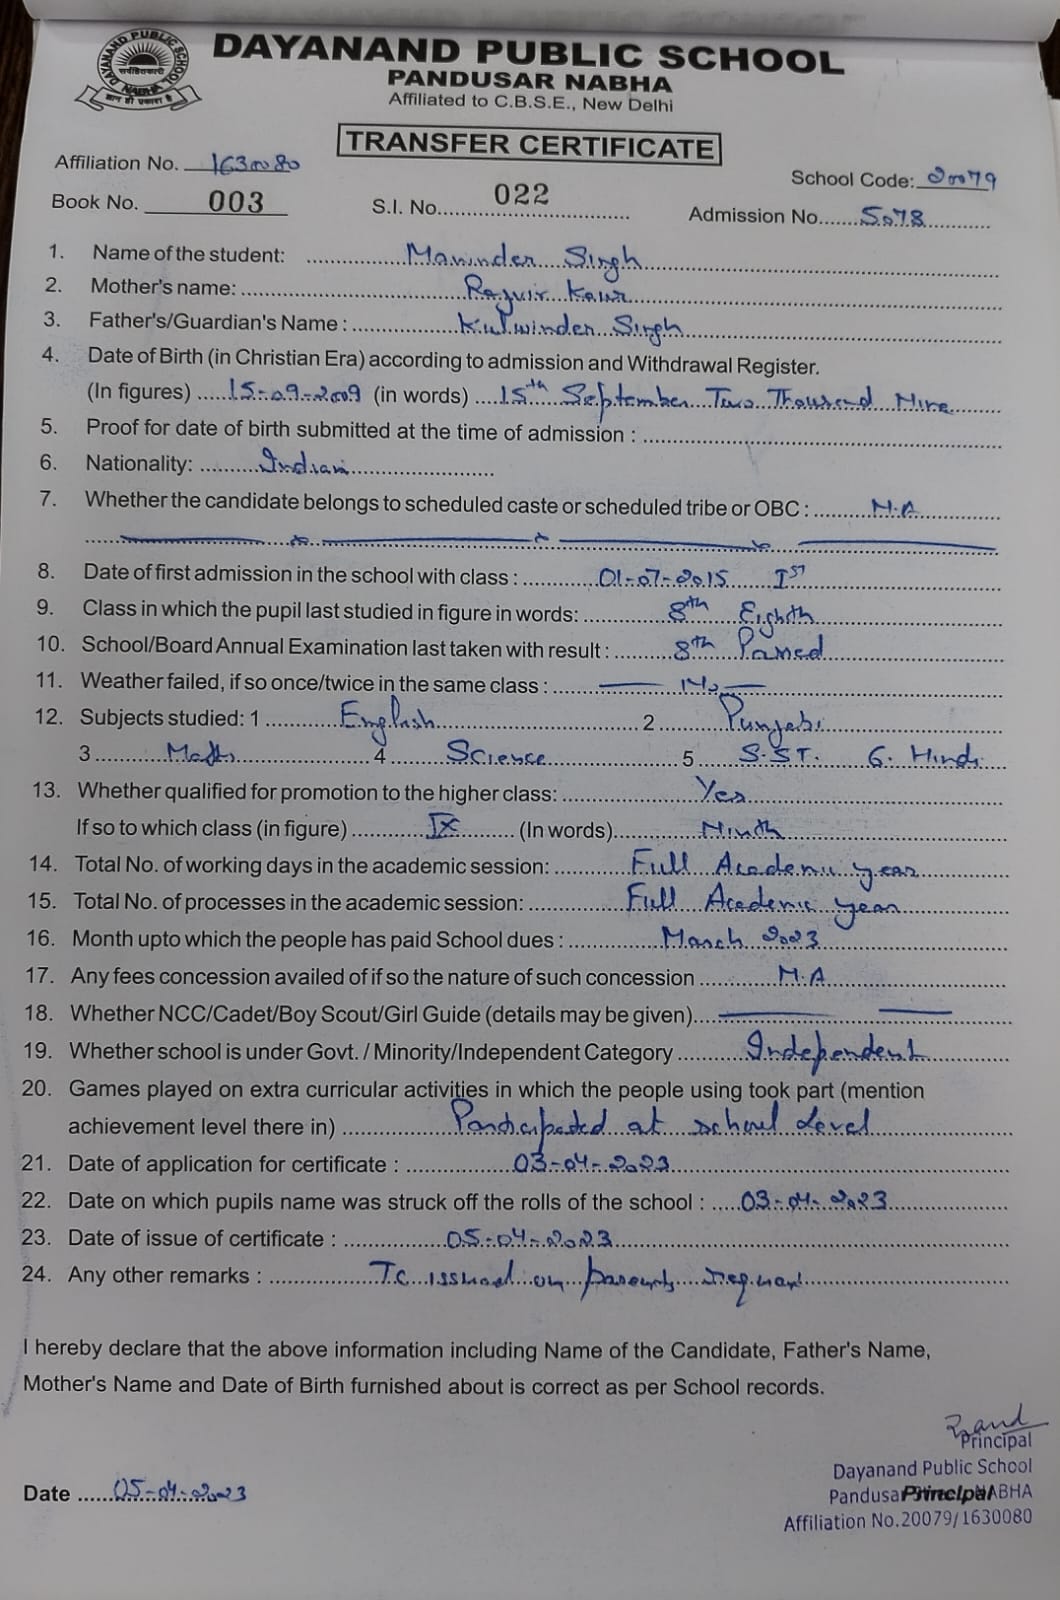 DAYANAND PUBLIC SCHOOL
NABHA
DAYANAND PUBLIC SCHOOL
PANDUSAR NABHA
Affiliated to C.B.S.E., New Delhi
TRANSFER CERTIFICATE
Affiliation No. 1630080
School Code: 20079
Book No. 003 S.I. No. 022 Admission No. 5078
1. Name of the student: Maninder Singh
2. Mother's name: Rajvir Kaur
3. Father's/Guardian's Name : Kulwinder Singh
4. Date of Birth (in Christian Era) according to admission and Withdrawal Register.
(In figures) 15-09-2009 (in words) 15th September Two Thousand Nine
5. Proof for date of birth submitted at the time of admission :
6. Nationality: Indian
7. Whether the candidate belongs to scheduled caste or scheduled tribe or OBC : N.A
8. Date of first admission in the school with class : 01-07-2015 Ist
9. Class in which the pupil last studied in figure in words: 8th Eighth
10. School/Board Annual Examination last taken with result : 8th Passed
11. Weather failed, if so once/twice in the same class : — No —
12. Subjects studied: 1 English 2 Punjabi
3 Maths 4 Science 5 S.ST. 6. Hindi
13. Whether qualified for promotion to the higher class: Yes
If so to which class (in figure) IX (In words) Ninth
14. Total No. of working days in the academic session: Full Academic year
15. Total No. of processes in the academic session: Full Academic year
16. Month upto which the people has paid School dues : March 2023
17. Any fees concession availed of if so the nature of such concession N.A
18. Whether NCC/Cadet/Boy Scout/Girl Guide (details may be given)
19. Whether school is under Govt. / Minority/Independent Category Independent
20. Games played on extra curricular activities in which the people using took part (mention
achievement level there in) Participated at school Level
21. Date of application for certificate : 03-04-2023
22. Date on which pupils name was struck off the rolls of the school : 03-04-2023
23. Date of issue of certificate : 05-04-2023
24. Any other remarks : TC issued on parents request
I hereby declare that the above information including Name of the Candidate, Father's Name,
Mother's Name and Date of Birth furnished about is correct as per School records.
Principal
Dayanand Public School
Date 05-04-2023
Pandusar Principal NABHA
Affiliation No.20079/1630080